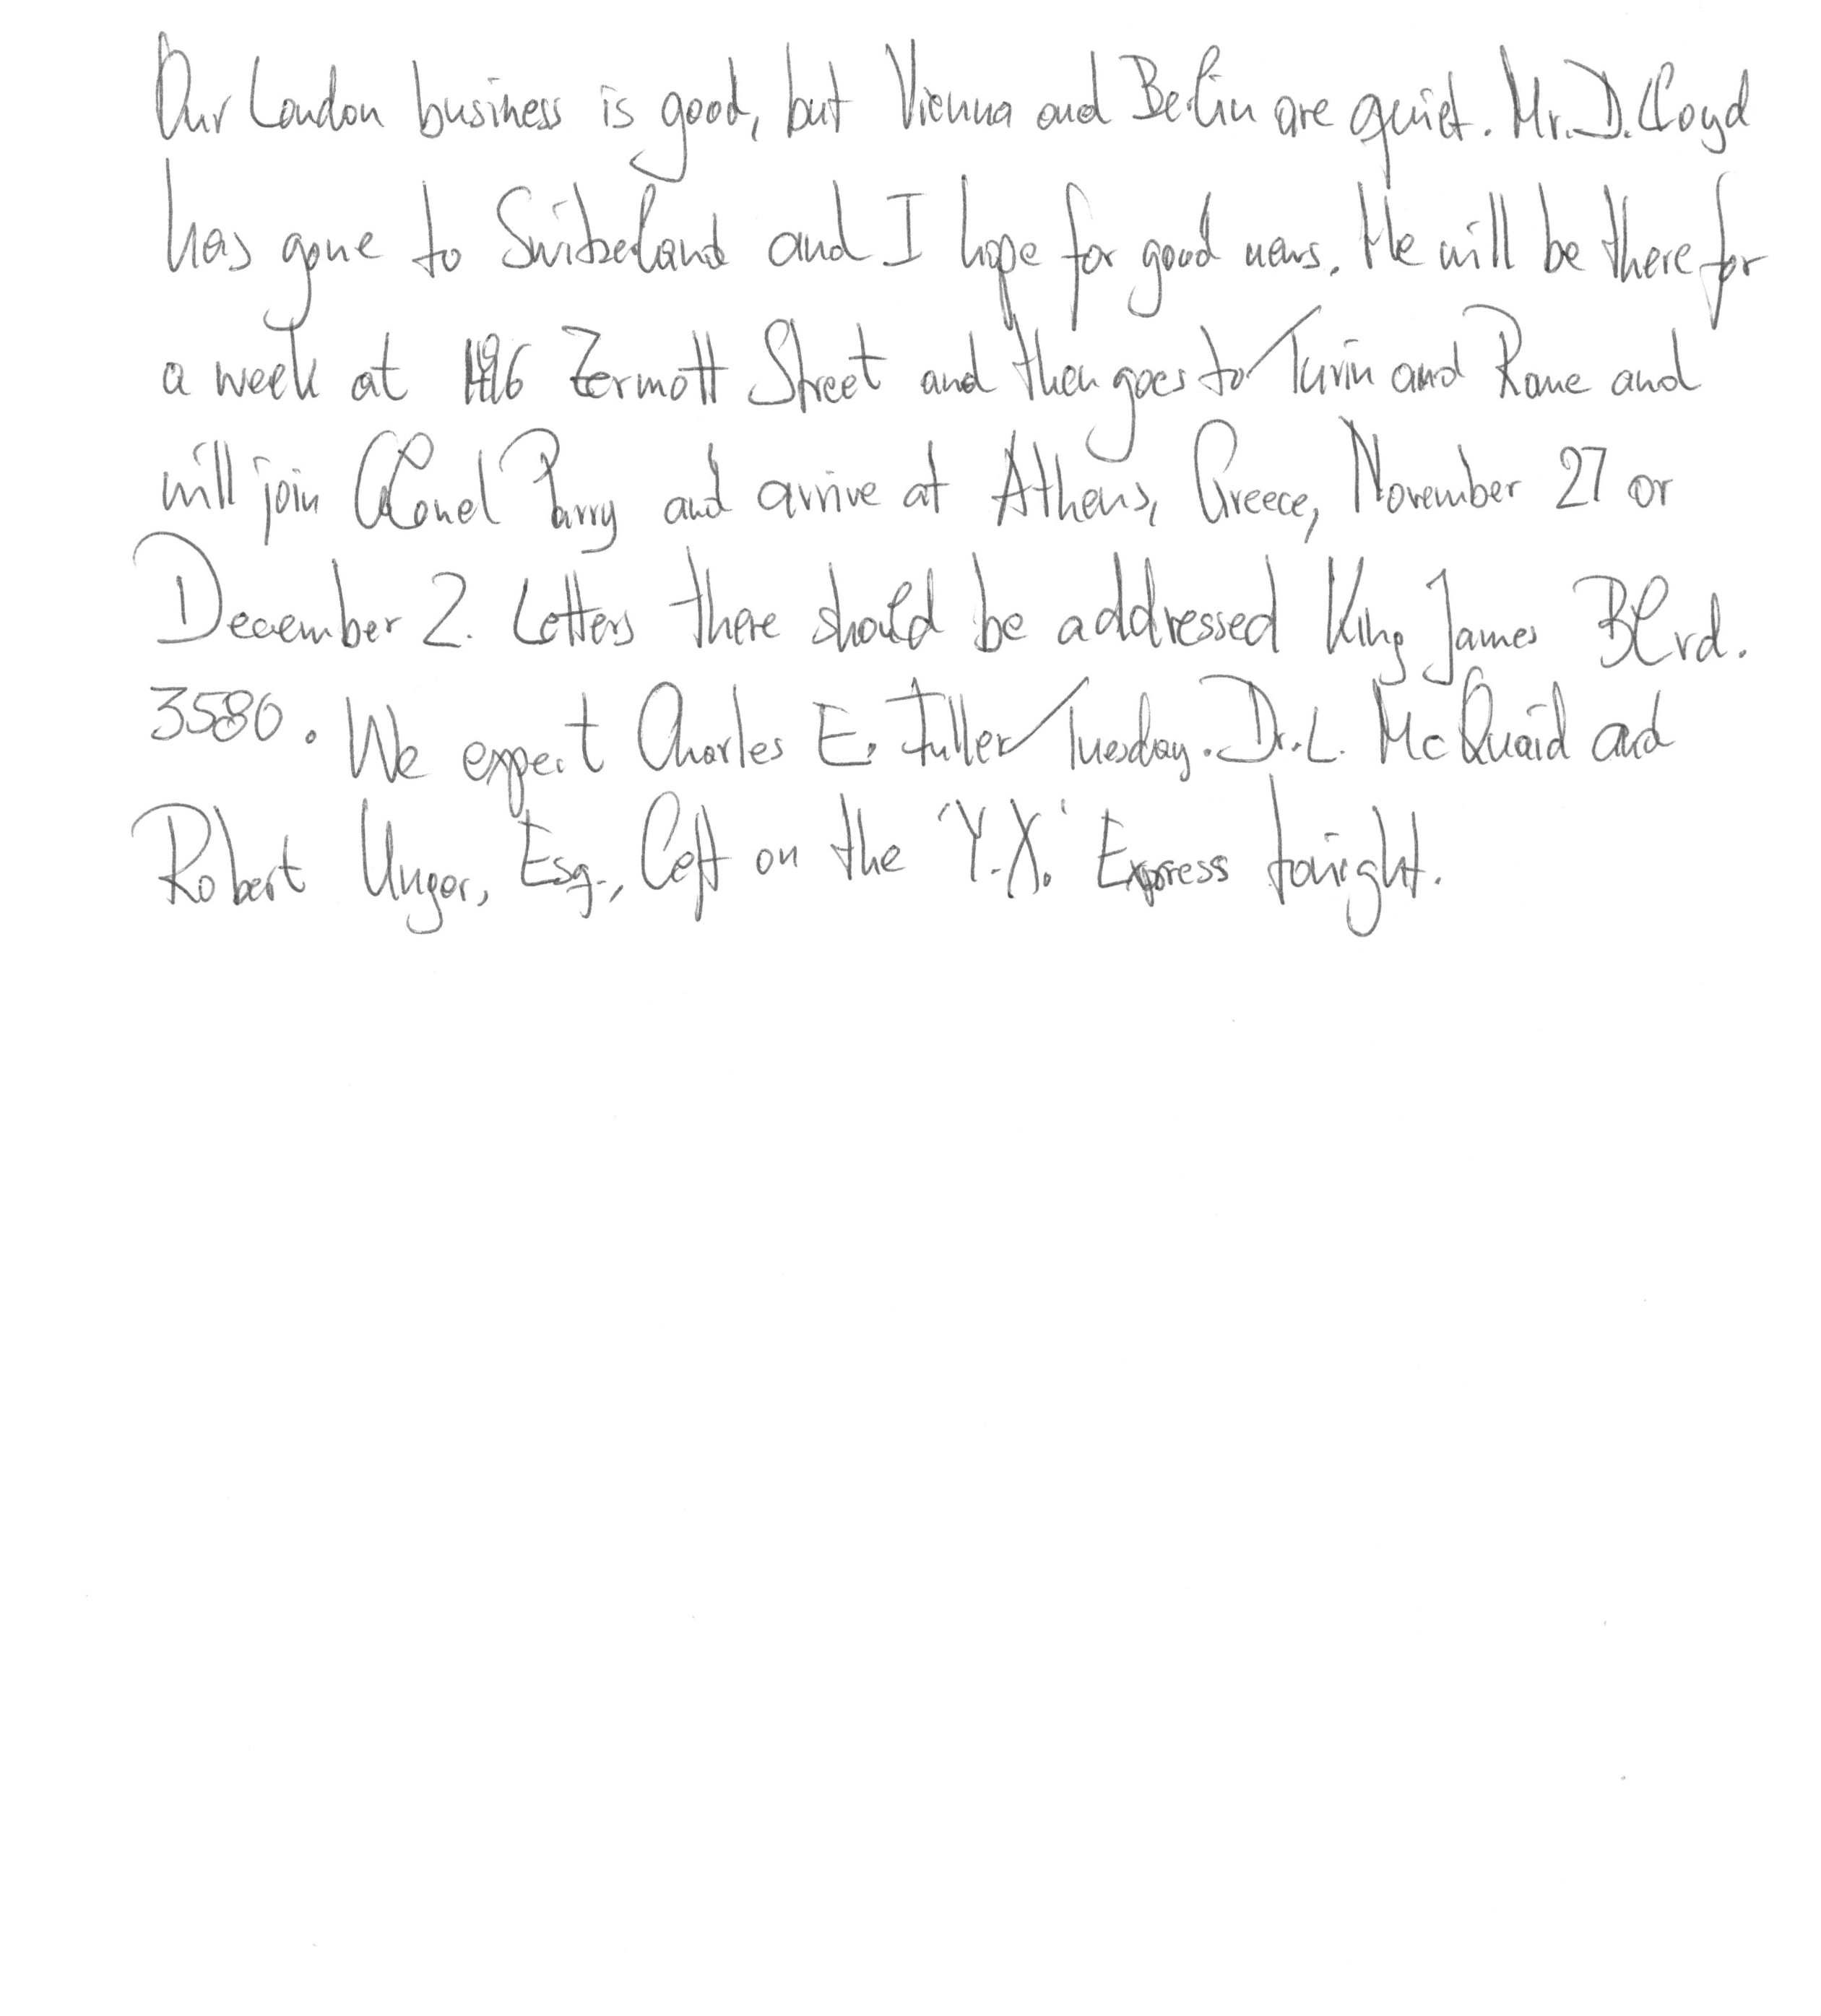 Our London business is good, but Vienna and Berlin are quiet. Mr. D. Lloyd
has gone to Switzerland and I hope for good news. He will be there for
a week at 1496 Zermott Street and then goes to Turin and Rome and
will join Colonel Parry and arrive at Athens, Greece, November 27 or
December 2. Letters there should be addressed King James Blvd.
3580. We expect Charles E. Fuller Tuesday. Dr. L. McQuaid and
Robert Unger, Esq., left on the 'Y.X.' Express tonight.